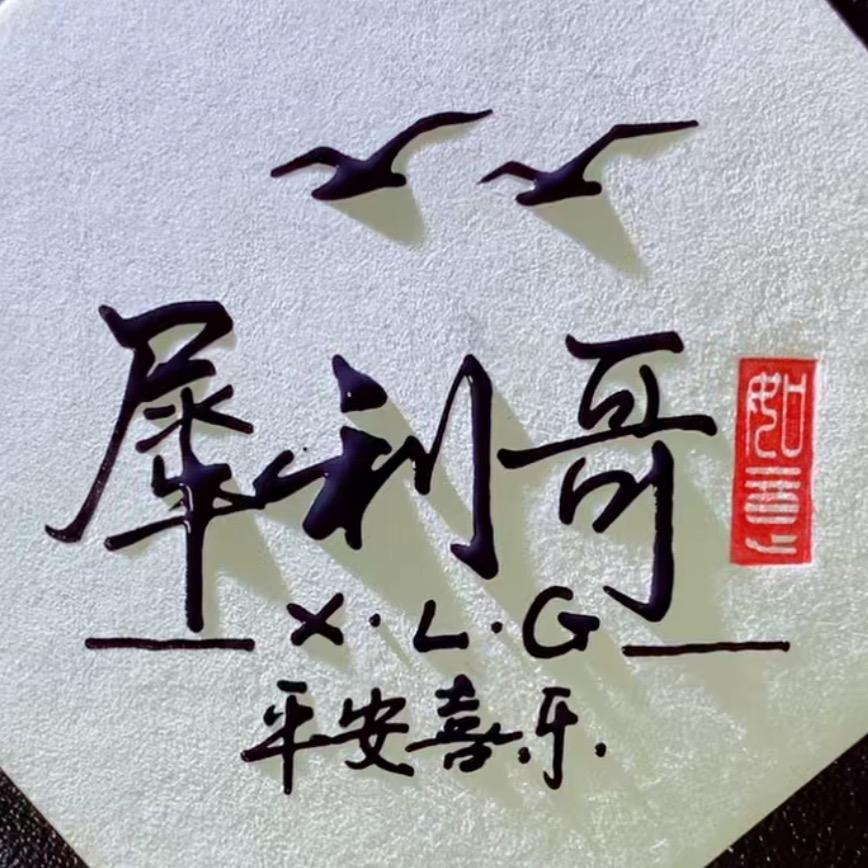 犀利哥
如意
X·L·G
平安喜乐.